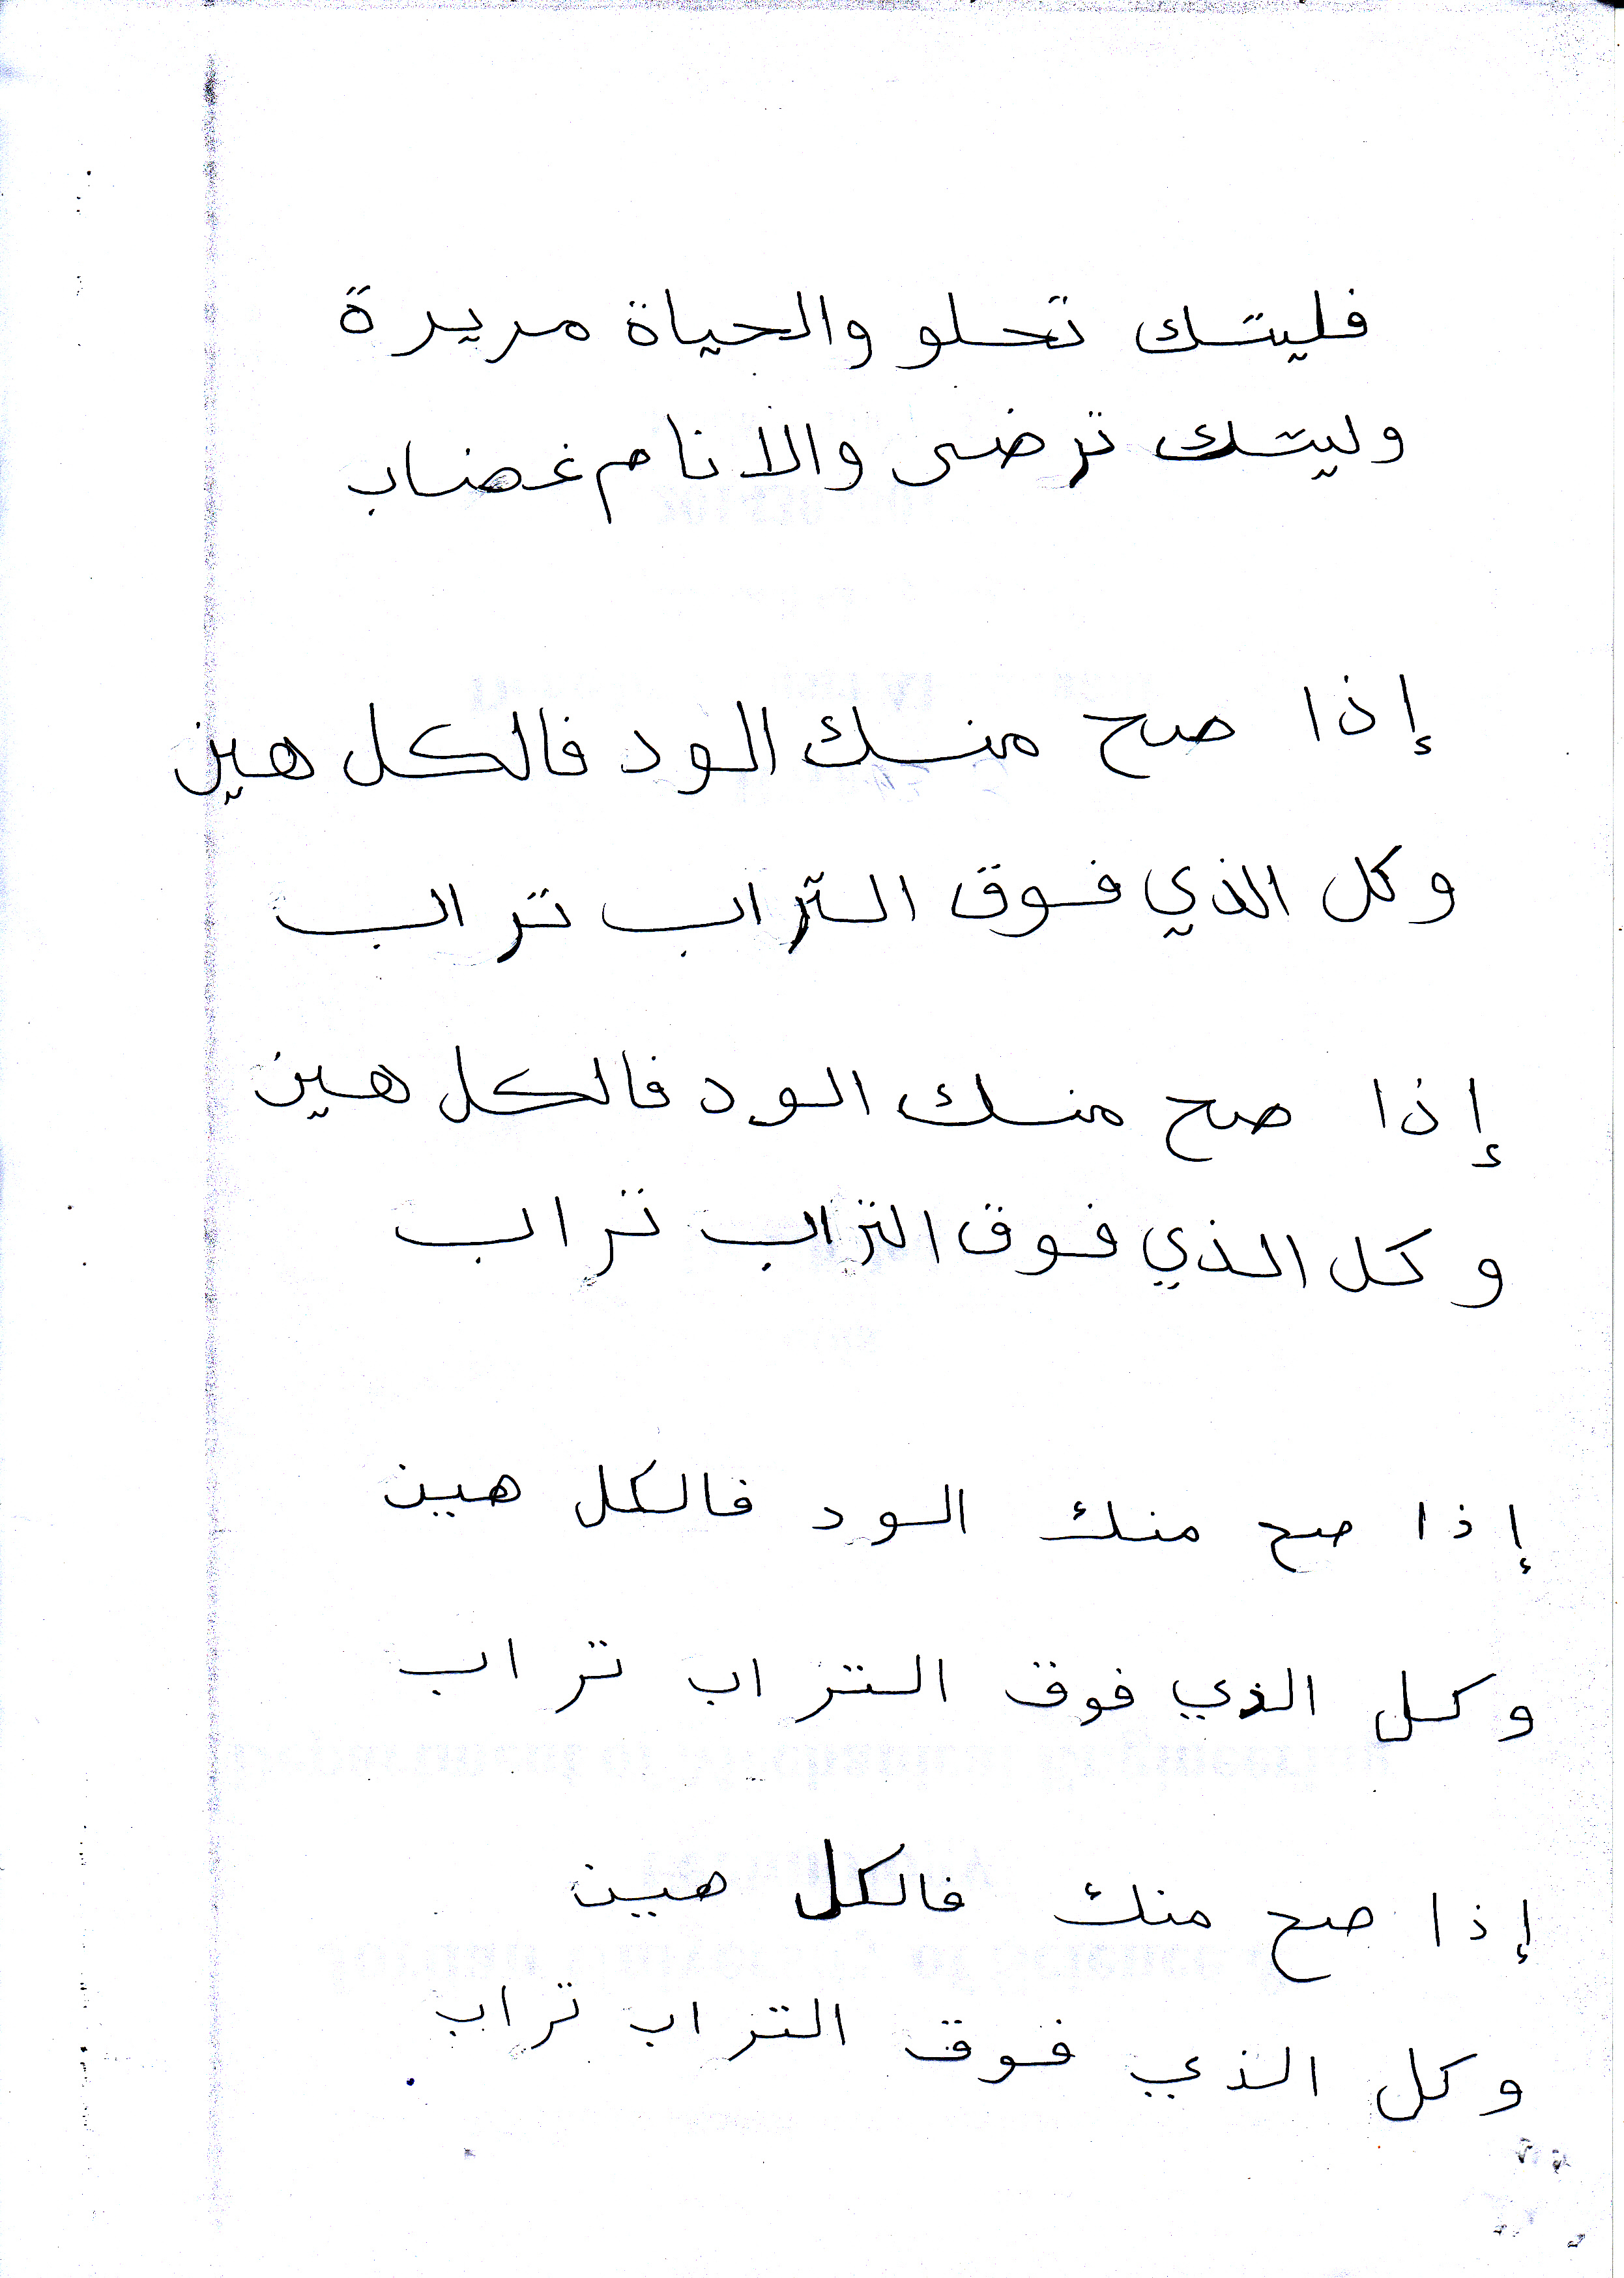 فليتك تحلو والحياة مريرة
وليتك ترضى والانام غضاب
إذا صح منك الود فالكل هين
وكل الذي فوق التراب تراب
إذا صح منك الود فالكل هين
وكل الذي فوق التراب تراب
إذا صح منك الود فالكل هين
وكل الذي فوق التراب تراب
إذا صح منك فالكل هين
وكل الذي فوق التراب تراب